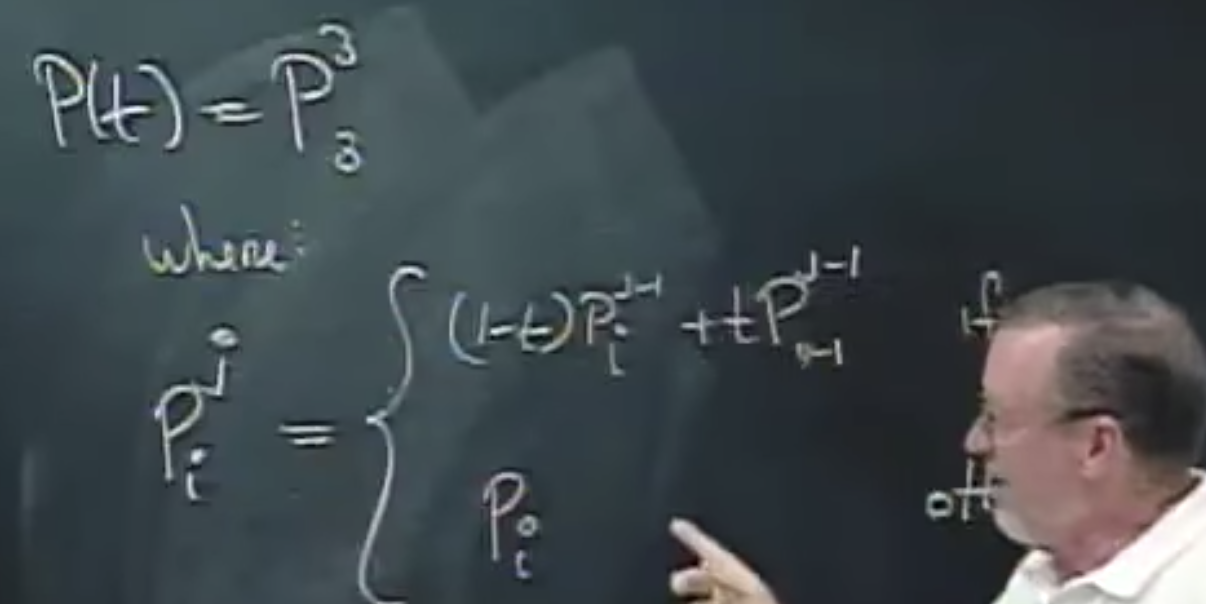 P(t) = P³₃
where:
Pᵢʲ = { (1-t)Pᵢʲ⁻¹ + tPᵢ₋₁ʲ⁻¹ if
Pᵢ